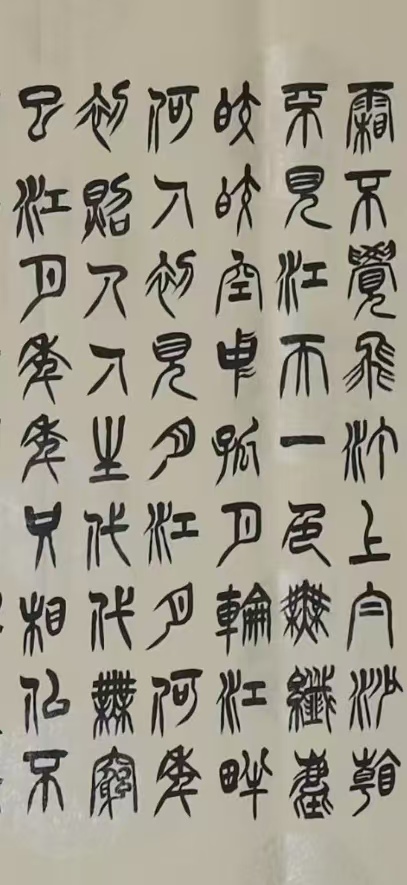 霜不覺飛汀上白沙看
不見江天一色無纖塵
皎皎空中孤月輪江畔
何人初見月江月何年
初照人人生代代無窮
已江月年年只相似不